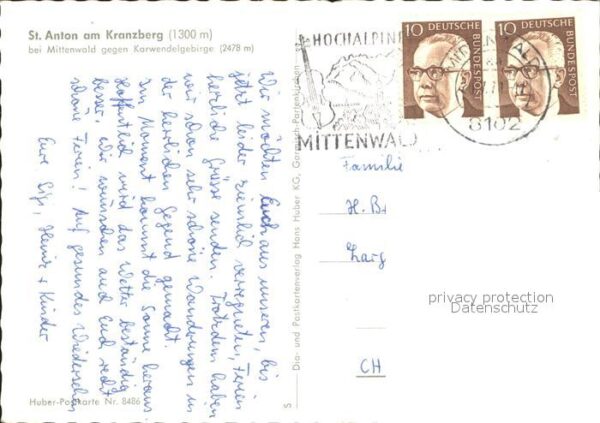 St. Anton am Kranzberg (1300 m)
bei Mittenwald gegen Karwendelgebirge (2478 m)
Wir möchten Euch aus unseren, bis
jetzt leider ziemlich verregneten, Ferien
herzliche Grüsse senden. Trotzdem haben
wir schon sehr schöne Wanderungen in
der herrlichen Gegend gemacht.
Im Moment kommt die Sonne heraus.
Hoffentlich wird das Wetter beständig
besser. Wir wünschen auch Euch recht
schöne Ferien! Auf gesundes Wiedersehen
Eure Sigi, Heinz + Kinder
Huber-Postkarte Nr. 8486
S
Dia- und Postkartenverlag Hans Huber KG, Garmisch-Partenkirchen
HOCHALPINE
MITTENWALD
8102
10 DEUTSCHE BUNDESPOST
10 DEUTSCHE BUNDESPOST
Familie
H. B
Zarg
CH
privacy protection
Datenschutz